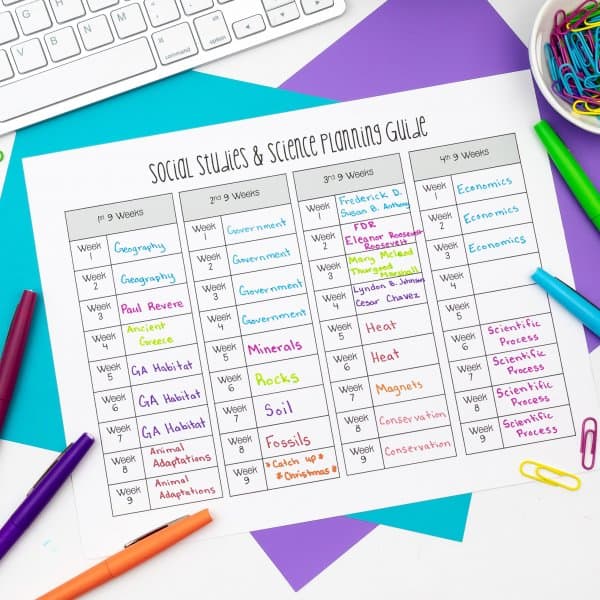 Social Studies & Science Planning Guide
1st 9 Weeks
Week 1
Geography
Week 2
Geography
Week 3
Paul Revere
Week 4
Ancient
Greece
Week 5
GA Habitat
Week 6
GA Habitat
Week 7
GA Habitat
Week 8
Animal
Adaptations
Week 9
Animal
Adaptations
2nd 9 Weeks
Week 1
Government
Week 2
Government
Week 3
Government
Week 4
Government
Week 5
Minerals
Week 6
Rocks
Week 7
Soil
Week 8
Fossils
Week 9
*Catch up*
*Christmas*
3rd 9 Weeks
Week 1
Frederick D.
Susan B. Anthony
Week 2
FDR
Eleanor Roosevelt
Roosevelt
Week 3
Mary McLeod
Thurgood
Marshall
Week 4
Lyndon B. Johnson
Cesar Chavez
Week 5
Heat
Week 6
Heat
Week 7
Magnets
Week 8
Conservation
Week 9
Conservation
4th 9 Weeks
Week 1
Economics
Week 2
Economics
Week 3
Economics
Week 4
Week 5
Week 6
Scientific
Process
Week 7
Scientific
Process
Week 8
Scientific
Process
Week 9
Scientific
Process